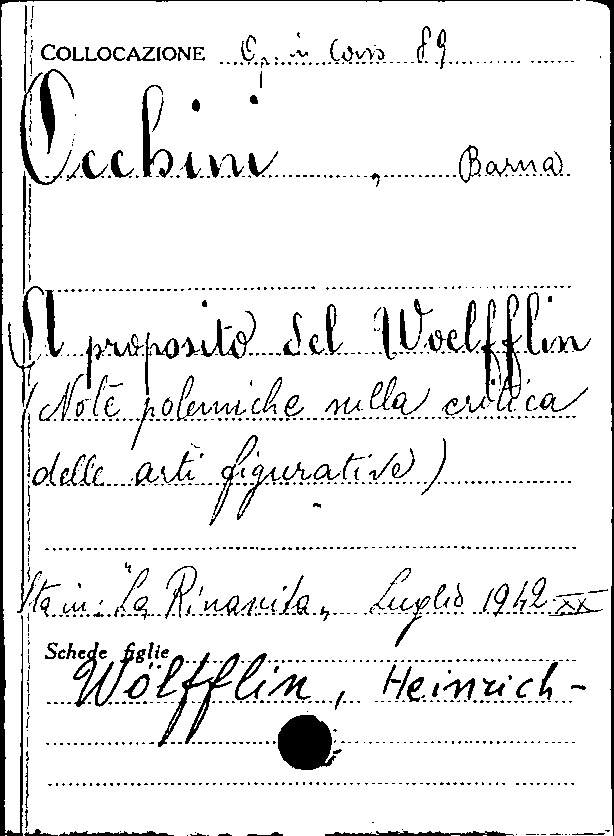 COLLOCAZIONE Op. in Cons 89
Occhini, Barna
A proposito del Woelfflin
(Note polemiche sulla critica
delle arti figurative)
Sta in: "La Rinascita„ Luglio 1942 XX
Schede figlie
Wölfflin, Heinrich -